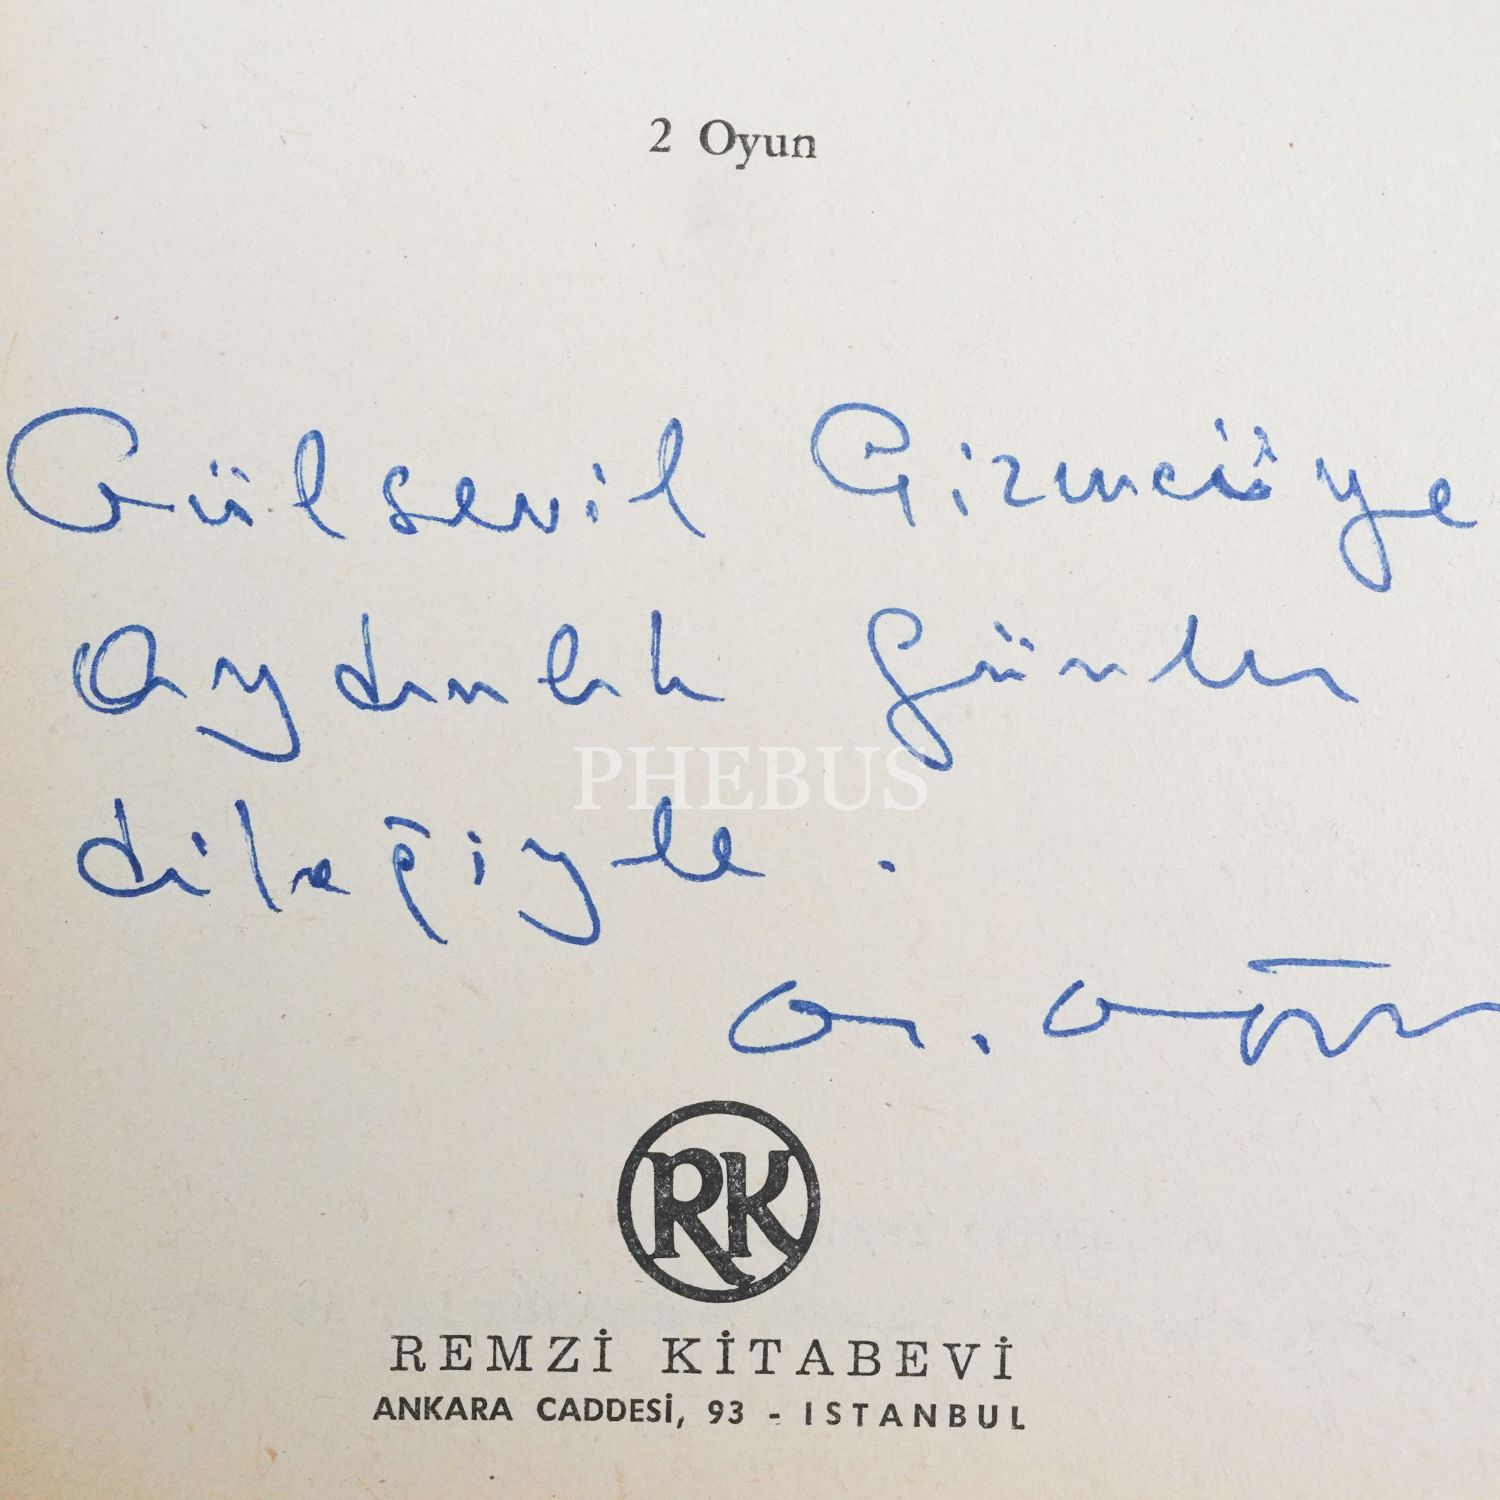 2 Oyun
Gülsevil Gizmcüye
Aydınlık günler
dileğiyle.
PHEBUS
RK
REMZİ KİTABEVİ
ANKARA CADDESİ, 93 - ISTANBUL